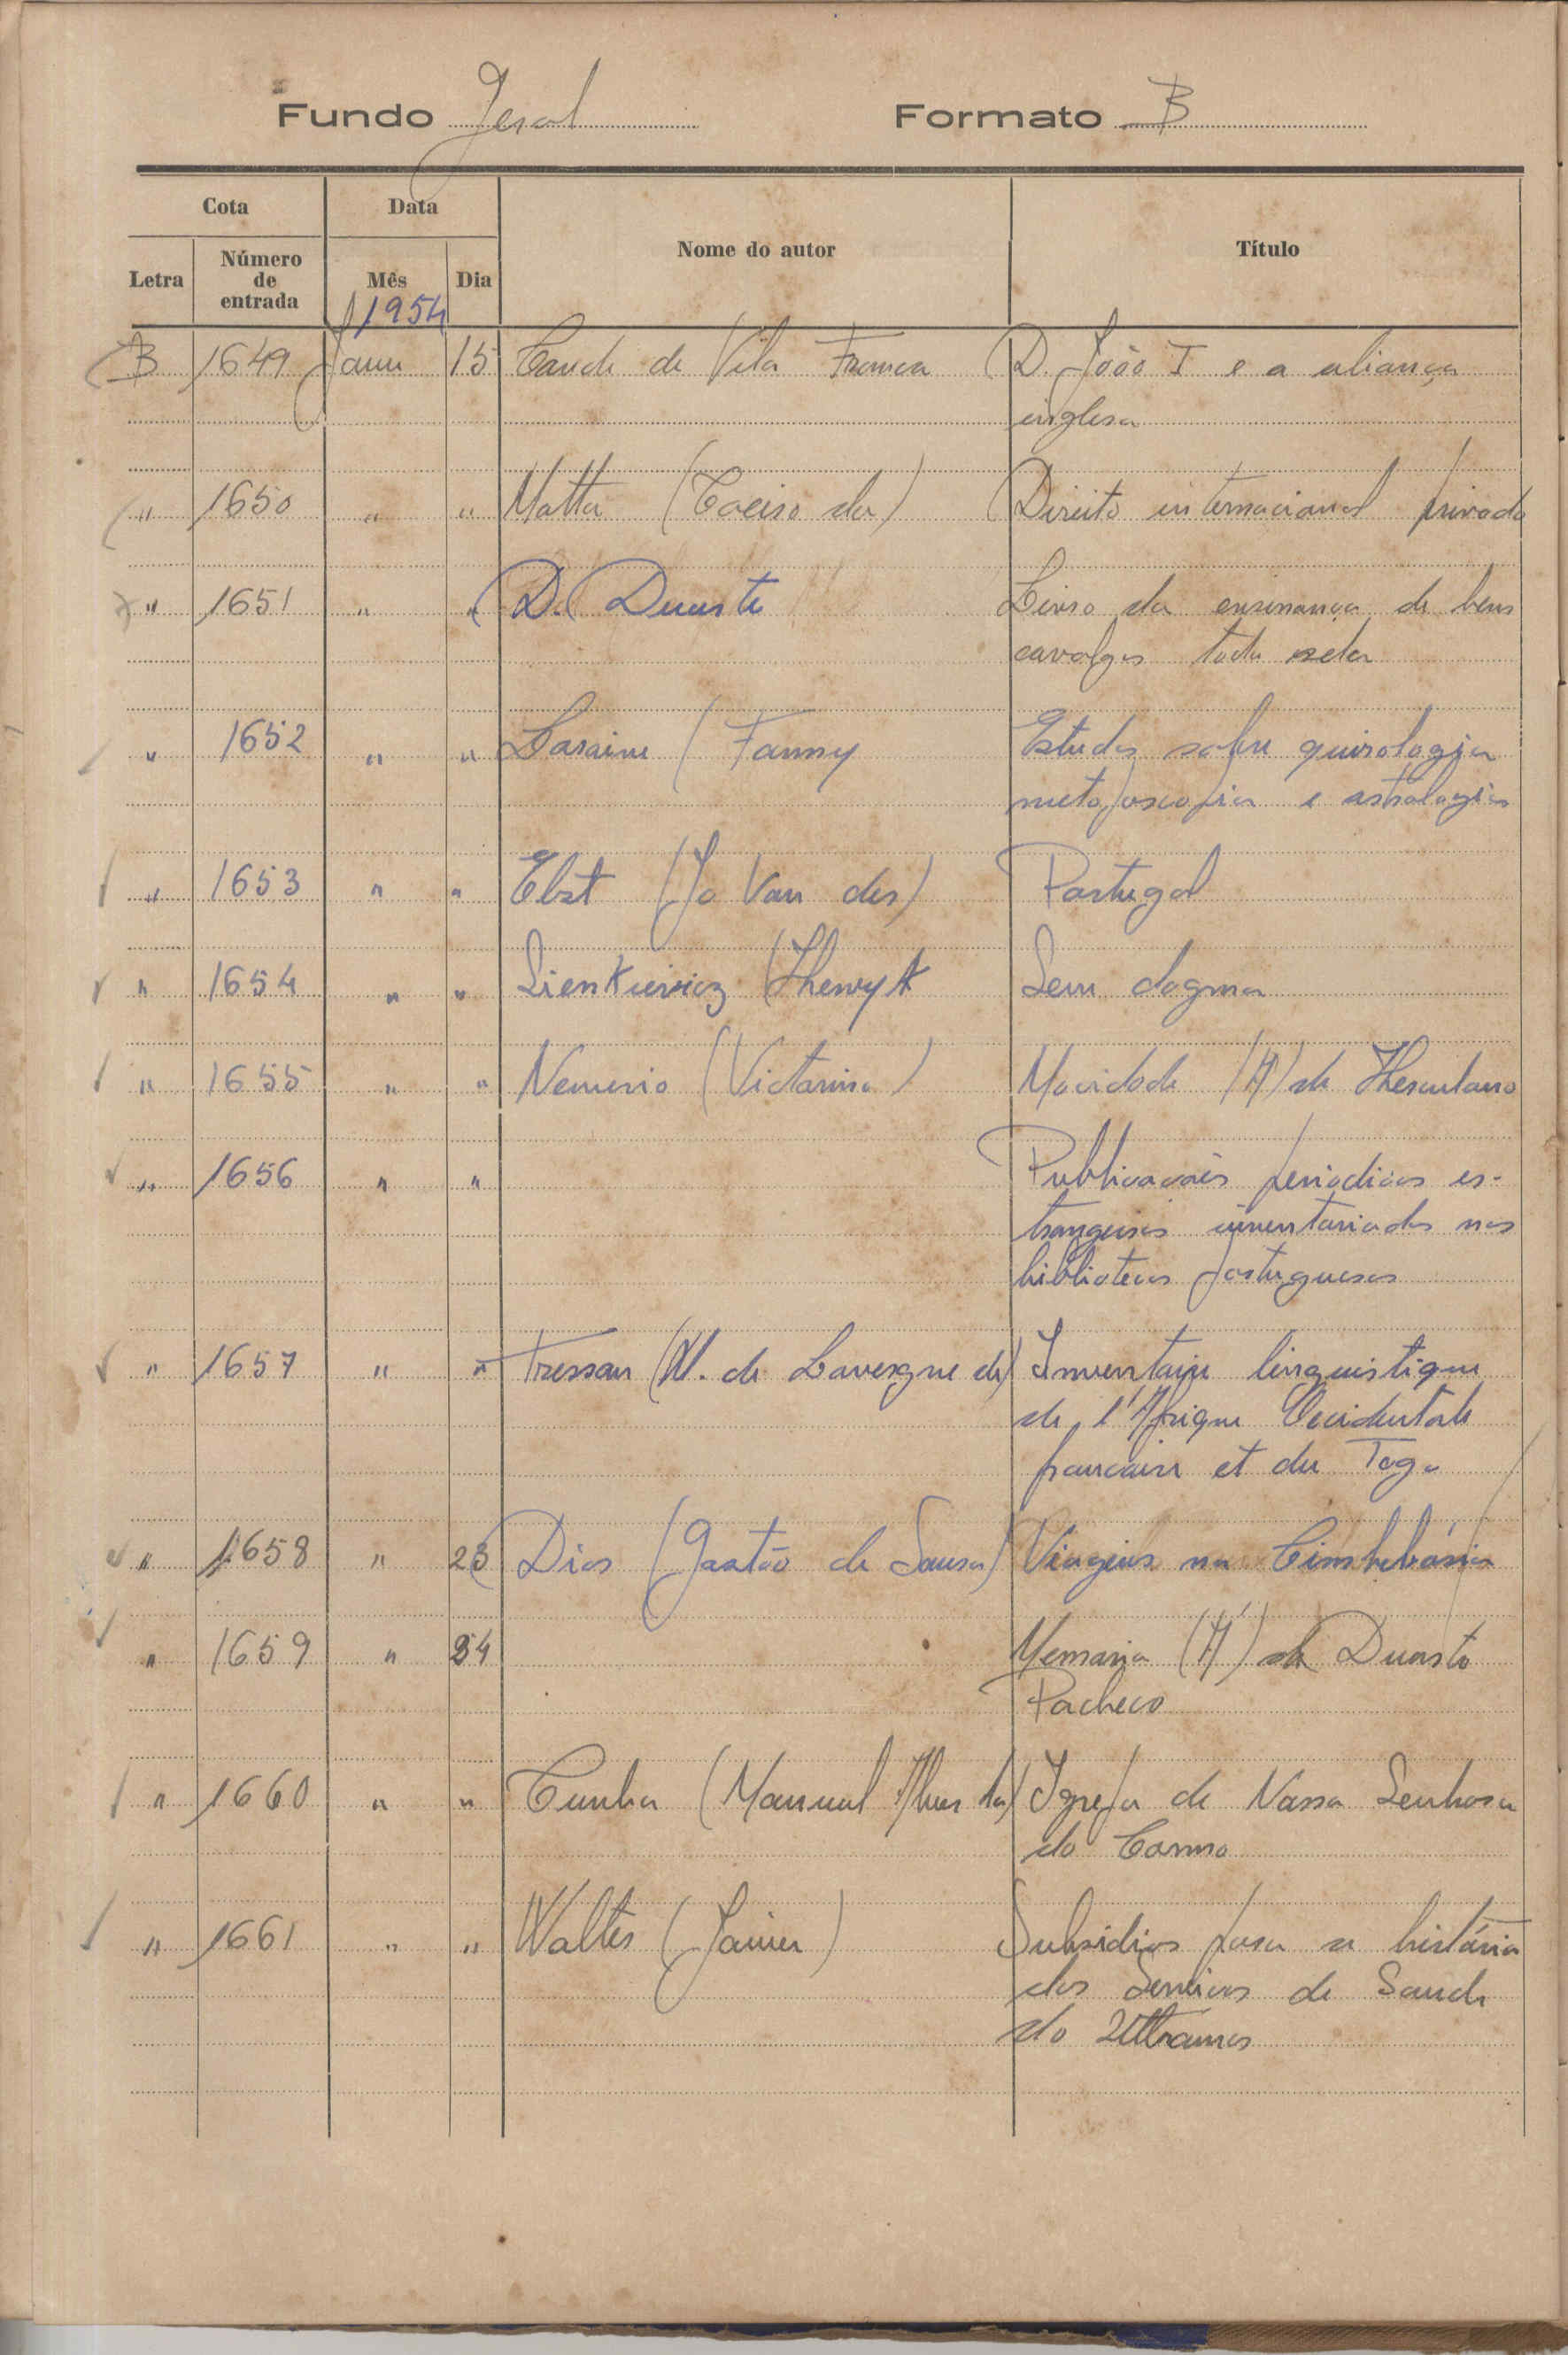 Fundo Geral Formato B
Cota Data Nome do autor Título
Letra Número de entrada Mês Dia
1954
B 1649 Janu 15 Conde de Vila Franca D. João I e a aliança
inglesa
" 1650 " " Matta (Caeiro da) Direito internacional privado
" 1651 " " D. Duarte Livro da ensinança de bem
cavalgar toda sela
" 1652 " " Loraine (Fanny Estudos sobre quirologia
metoposcopia e astrologia
" 1653 " " Elst (Jo Van der) Portugal
" 1654 " " Sienkiewicz (Henryk Sem dogma
" 1655 " " Nemesio (Victorino) Mocidade (A) de Herculano
" 1656 " " Publicações periodicas es-
trangeiras inventariadas nas
bibliotecas portuguesas
" 1657 " " Tressan (M. de Lavergne de) Inventaire linguistique
de l'Afrique Occidentale
française et du Togo
" 1658 " 23 Dias (Gastão de Sousa) Viagens na Cimbebásia
" 1659 " 24 Memoria (A) de Duarte
Pacheco
" 1660 " " Cunha (Manuel Alves da) Igreja de Nossa Senhora
do Carmo
" 1661 " " Walter (Jaime) Subsidios para a história
dos Serviços de Saude
do Ultramar